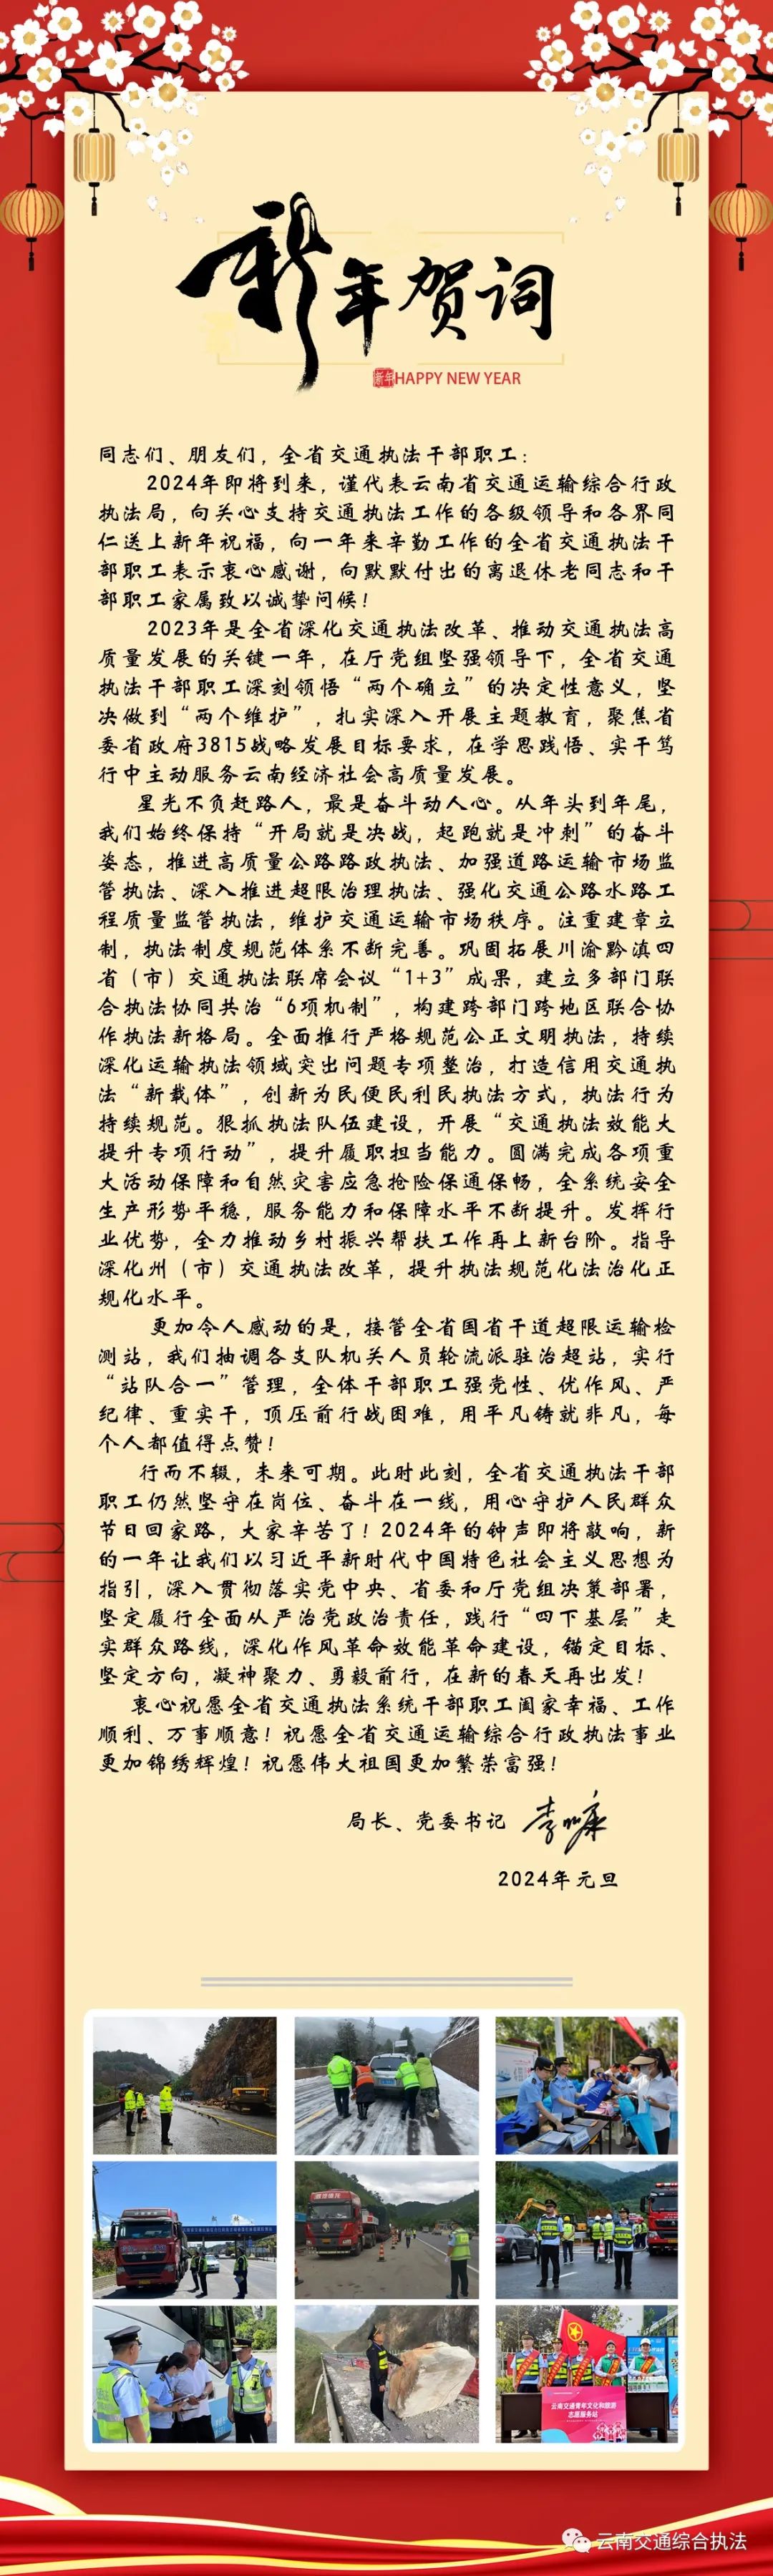 新年贺词
新年
HAPPY NEW YEAR
同志们、朋友们，全省交通执法干部职工：
2024年即将到来，谨代表云南省交通运输综合行政
执法局，向关心支持交通执法工作的各级领导和各界同
仁送上新年祝福，向一年来辛勤工作的全省交通执法干
部职工表示衷心感谢，向默默付出的离退休老同志和干
部职工家属致以诚挚问候！
2023年是全省深化交通执法改革、推动交通执法高
质量发展的关键一年，在厅党组坚强领导下，全省交通
执法干部职工深刻领悟“两个确立”的决定性意义，坚
决做到“两个维护”，扎实深入开展主题教育，聚焦省
委省政府3815战略发展目标要求，在学思践悟、实干笃
行中主动服务云南经济社会高质量发展。
星光不负赶路人，最是奋斗动人心。从年头到年尾，
我们始终保持“开局就是决战，起跑就是冲刺”的奋斗
姿态，推进高质量公路路政执法、加强道路运输市场监
管执法、深入推进超限治理执法、强化交通公路水路工
程质量监管执法，维护交通运输市场秩序。注重建章立
制，执法制度规范体系不断完善。巩固拓展川渝黔滇四
省（市）交通执法联席会议“1+3”成果，建立多部门联
合执法协同共治“6项机制”，构建跨部门跨地区联合协
作执法新格局。全面推行严格规范公正文明执法，持续
深化运输执法领域突出问题专项整治，打造信用交通执
法“新载体”，创新为民便民利民执法方式，执法行为
持续规范。狠抓执法队伍建设，开展“交通执法效能大
提升专项行动”，提升履职担当能力。圆满完成各项重
大活动保障和自然灾害应急抢险保通保畅，全系统安全
生产形势平稳，服务能力和保障水平不断提升。发挥行
业优势，全力推动乡村振兴帮扶工作再上新台阶。指导
深化州（市）交通执法改革，提升执法规范化法治化正
规化水平。
更加令人感动的是，接管全省国省干道超限运输检
测站，我们抽调各支队机关人员轮流派驻治超站，实行
“站队合一”管理，全体干部职工强党性、优作风、严
纪律、重实干，顶压前行战困难，用平凡铸就非凡，每
个人都值得点赞！
行而不辍，未来可期。此时此刻，全省交通执法干部
职工仍然坚守在岗位、奋斗在一线，用心守护人民群众
节日回家路，大家辛苦了！2024年的钟声即将敲响，新
的一年让我们以习近平新时代中国特色社会主义思想为
指引，深入贯彻落实党中央、省委和厅党组决策部署，
坚定履行全面从严治党政治责任，践行“四下基层”走
实群众路线，深化作风革命效能革命建设，锚定目标、
坚定方向，凝神聚力、勇毅前行，在新的春天再出发！
衷心祝愿全省交通执法系统干部职工阖家幸福、工作
顺利、万事顺意！祝愿全省交通运输综合行政执法事业
更加锦绣辉煌！祝愿伟大祖国更加繁荣富强！
局长、党委书记
2024年元旦
云南交通青年文化和旅游
志愿服务站
云南交通综合执法